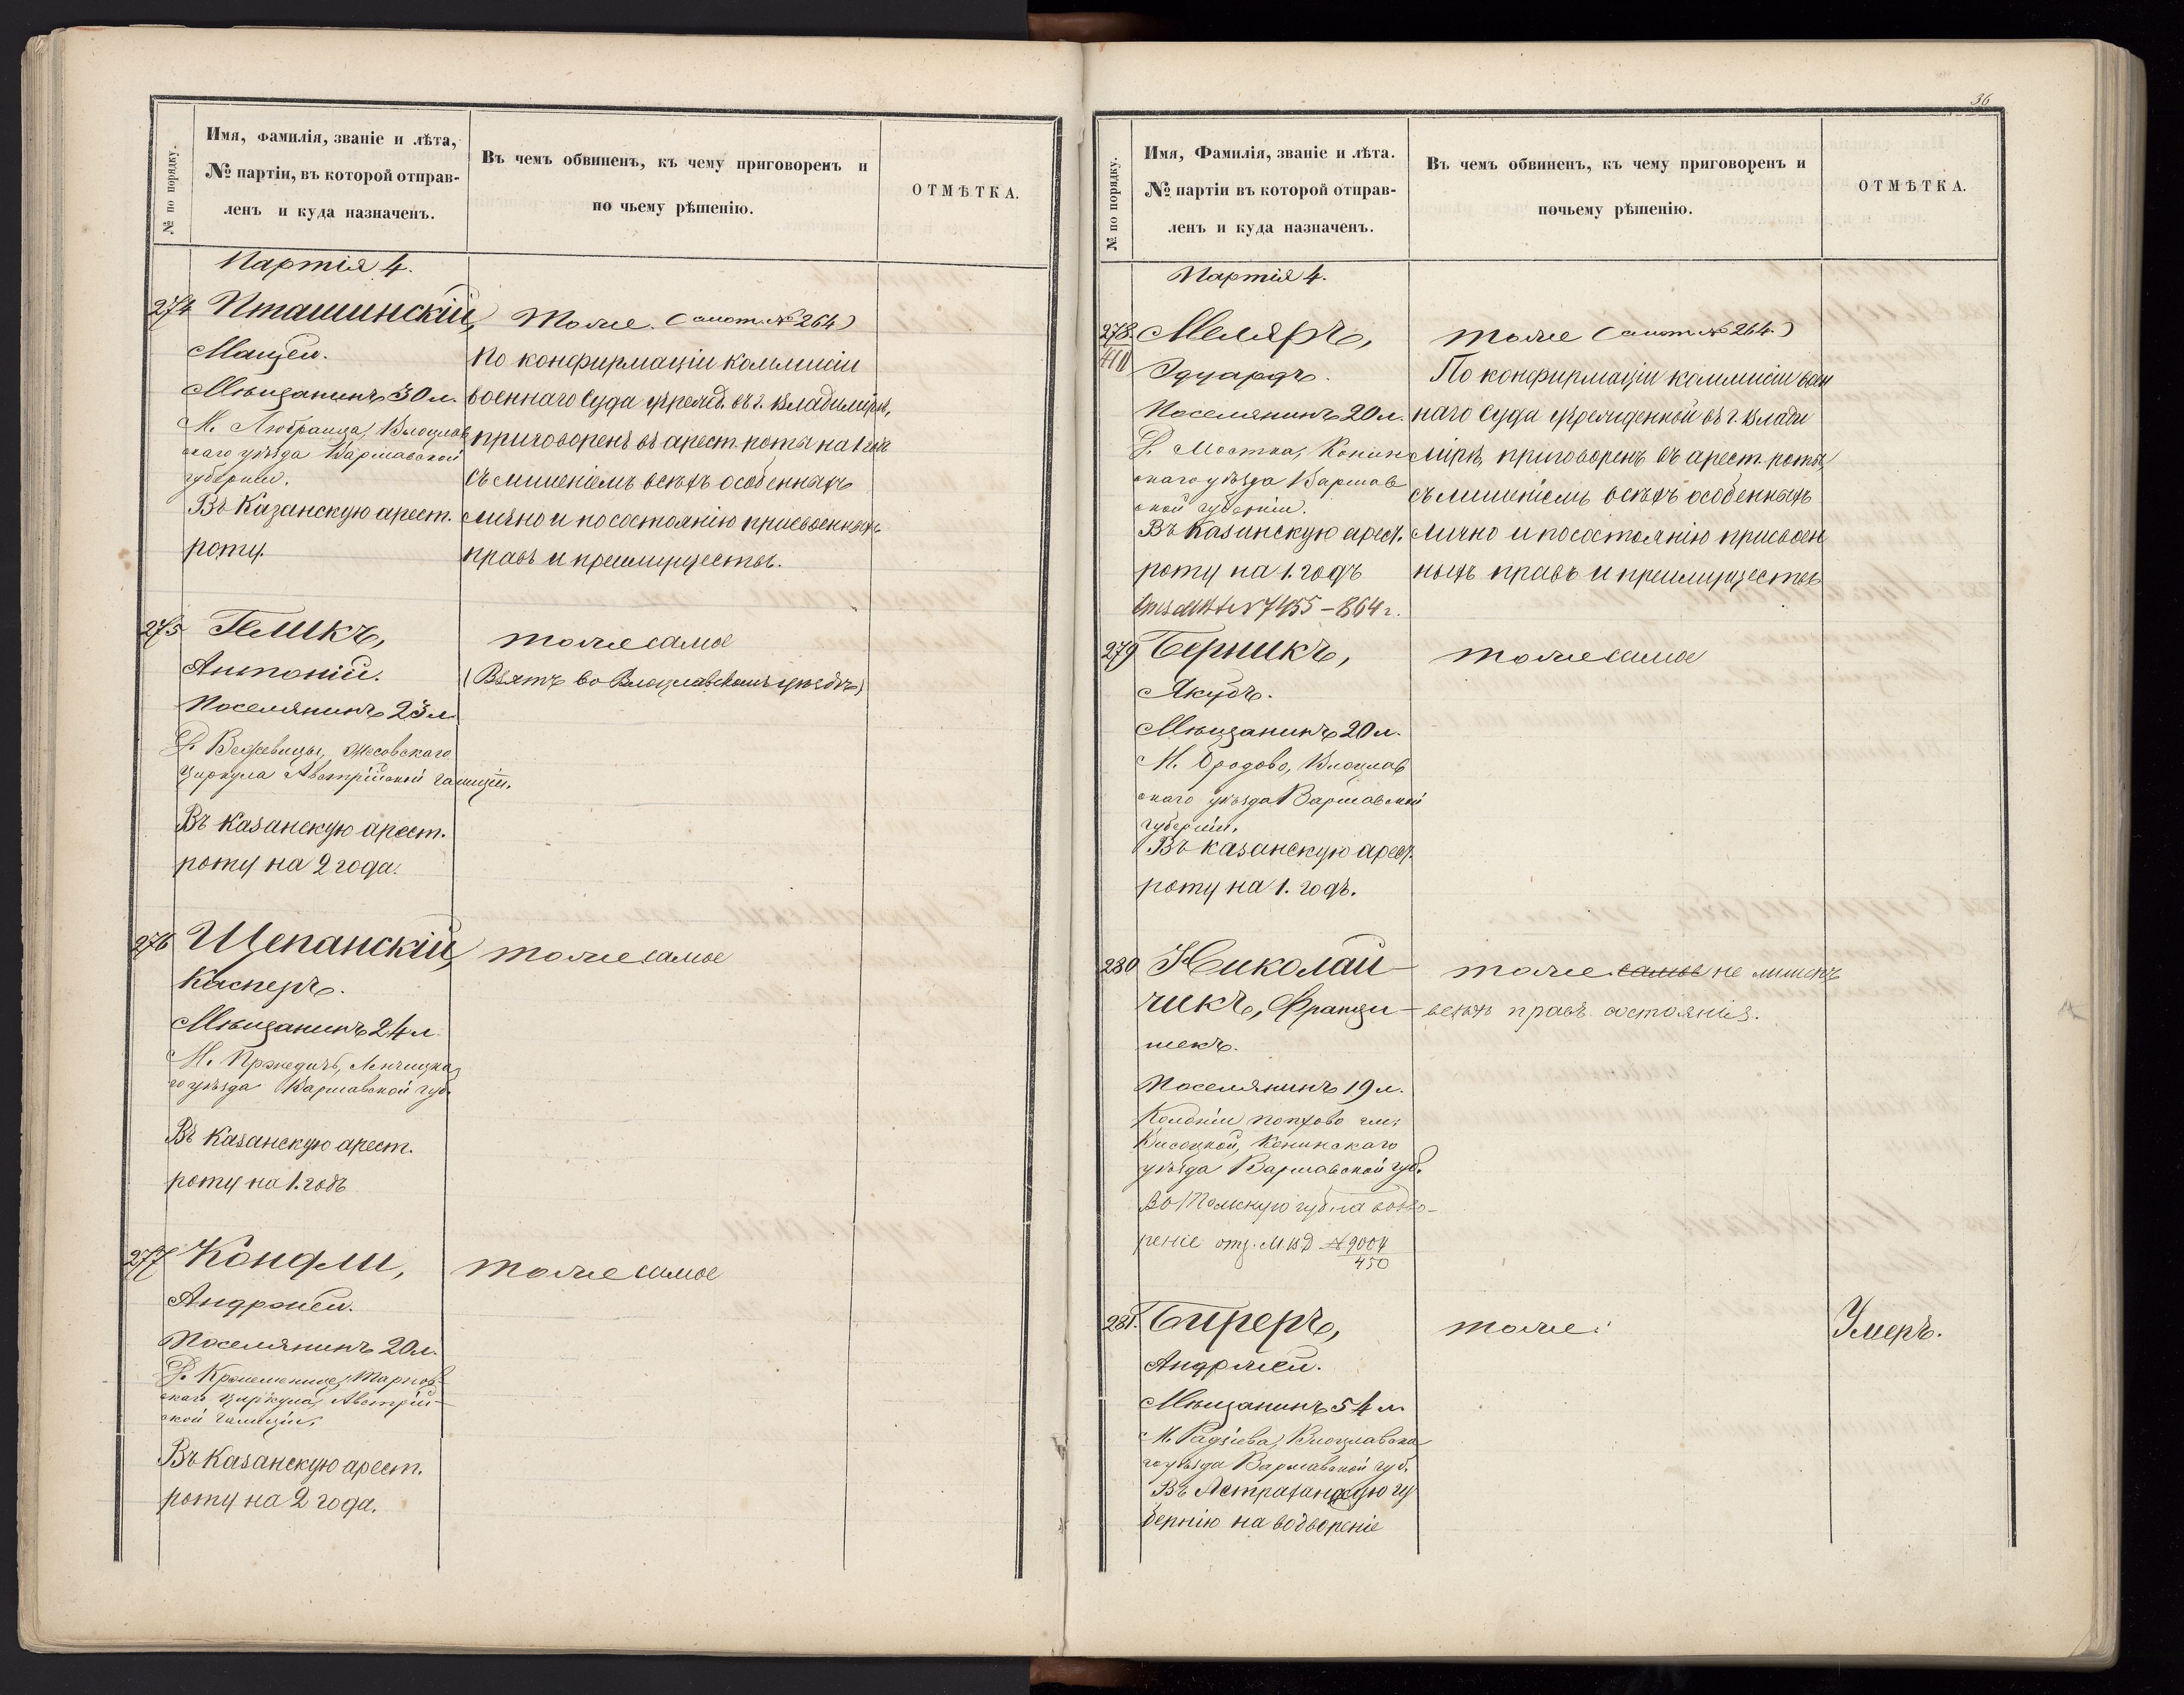 № по порядку.
Имя, Фамилія, званіе и лѣта,
№ партіи, въ которой отправ-
ленъ и куда назначенъ.
Въ чемъ обвиненъ, къ чему приговоренъ и
по чьему рѣшенію.
ОТМѢТКА.
Партія 4.
274 Пташинскій,
Мацѣй.
Мѣщанинъ 30 л.
М. Любранца, Влоцлав
скаго уѣзда Варшавской
губерніи.
Въ Казанскую арест.
роту.
Тоже. (смот. № 264)
По конфирмаціи коммисіи
военнаго суда учрежд. въ г. Владимірѣ,
приговоренъ въ арест. роты на 1 годъ
съ лишеніемъ всѣхъ особенныхъ
лично и по состоянію присвоенныхъ
правъ и преимуществъ.
275 Геликъ,
Антоній.
Поселянинъ 23 л.
Циркула Австрійской Галиціи.
Въ Казанскую арест.
роту на 2 года.
тоже самое
(Взятъ во Влоцлавскомъ уѣздѣ)
276 Щепанскій,
Касперъ.
Мѣщанинъ 24 л.
М. Пржедичъ, Ленчицка
го уѣзда Варшавской губ.
Въ Казанскую арест.
роту на 1. годъ
тоже самое
277 Кондли,
Андржей.
Поселянинъ 20 л.
скаго циркула, Австрій-
ской Галиціи.
Въ Казанскую арест.
роту на 2 года.
тоже самое
36
№ по порядку.
Имя, Фамилія, званіе и лѣта.
№ партіи въ которой отправ-
ленъ и куда назначенъ.
Въ чемъ обвиненъ, къ чему приговоренъ и
почьему рѣшенію.
ОТМѢТКА.
Партія 4.
278. Меляръ,
Эдуардъ.
Поселянинъ 20 л.
Д. Мостка, Конин
скаго уѣзда Варшав
ской губерніи.
Въ Казанскую арест.
роту на 1. годъ
№ 7455 – 864 г.
тоже (смот. № 264.)
По конфирмаціи коммисіи воен
наго суда учрежденной въ г. Влади
мірѣ, приговоренъ въ арест. роты,
съ лишеніемъ всѣхъ особенныхъ
лично и по состоянію присвоен
ныхъ правъ и преимуществъ
279 Берникъ,
Якубъ.
Мѣщанинъ 20 л.
М. Бродово, Влоцлав
скаго уѣзда Варшавской
губерніи.
Въ Казанскую арест.
роту на 1. годъ.
тоже самое
280 Николай-
чикъ, Франци-
шекъ.
Поселянинъ 19 л.
Колоніи
Конинскаго
уѣзда Варшавской губ.
Въ Томскую губ. на водво-
реніе отз. М В Д № 9004
450
тоже самое не лишенъ
всѣхъ правъ состоянія.
281. Биреръ,
Андржей.
Мѣщанинъ 54 л.
М. Радзіева, Влоцлавска
го уѣзда Варшавской губ.
Въ Астраханскую гу
бернію на водвореніе
тоже.
Умеръ.